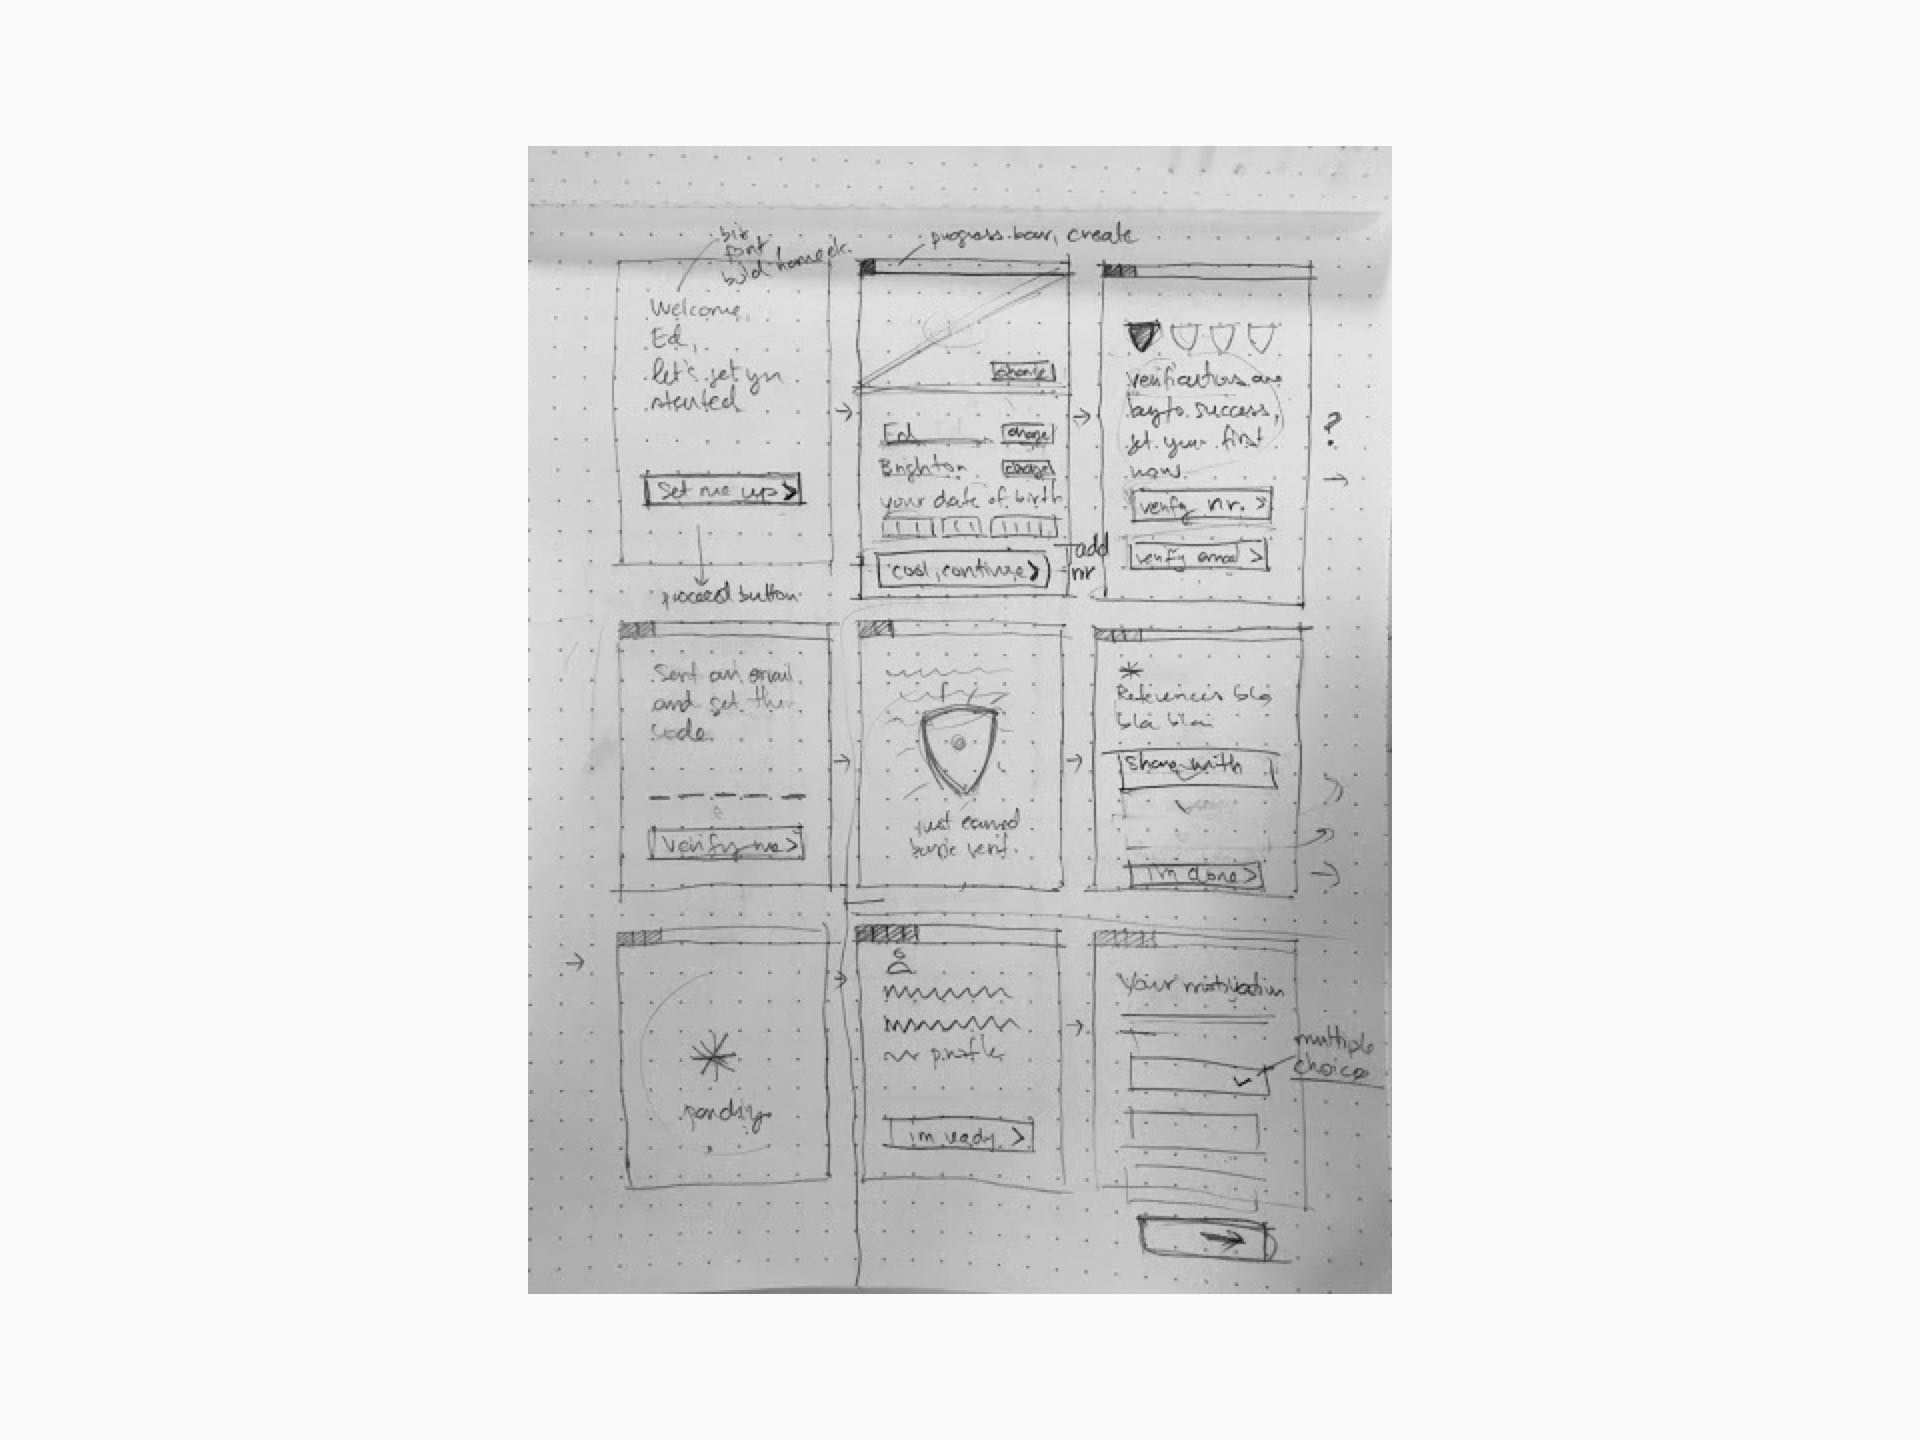 big
font
bold
progress bar, create
Welcome,
Ed,
let's get you
started
Set me up >
proceed button
change
Ed change
Brighton change
your date of birth
cool, continue >
add
nr
verifications are
key to success,
get your first
now.
verify nr. >
verify email >
?
Sent an email
and get the
code.
Verify me >
just earned
basic verif.
References bla
bla bla
Share with
i'm done >
pending
profile
im ready >
Your motivation
multiple
choice